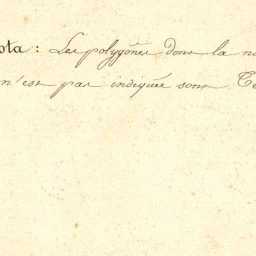 ota : Les polygônes dont la n
n'est pas indiquée sont Te